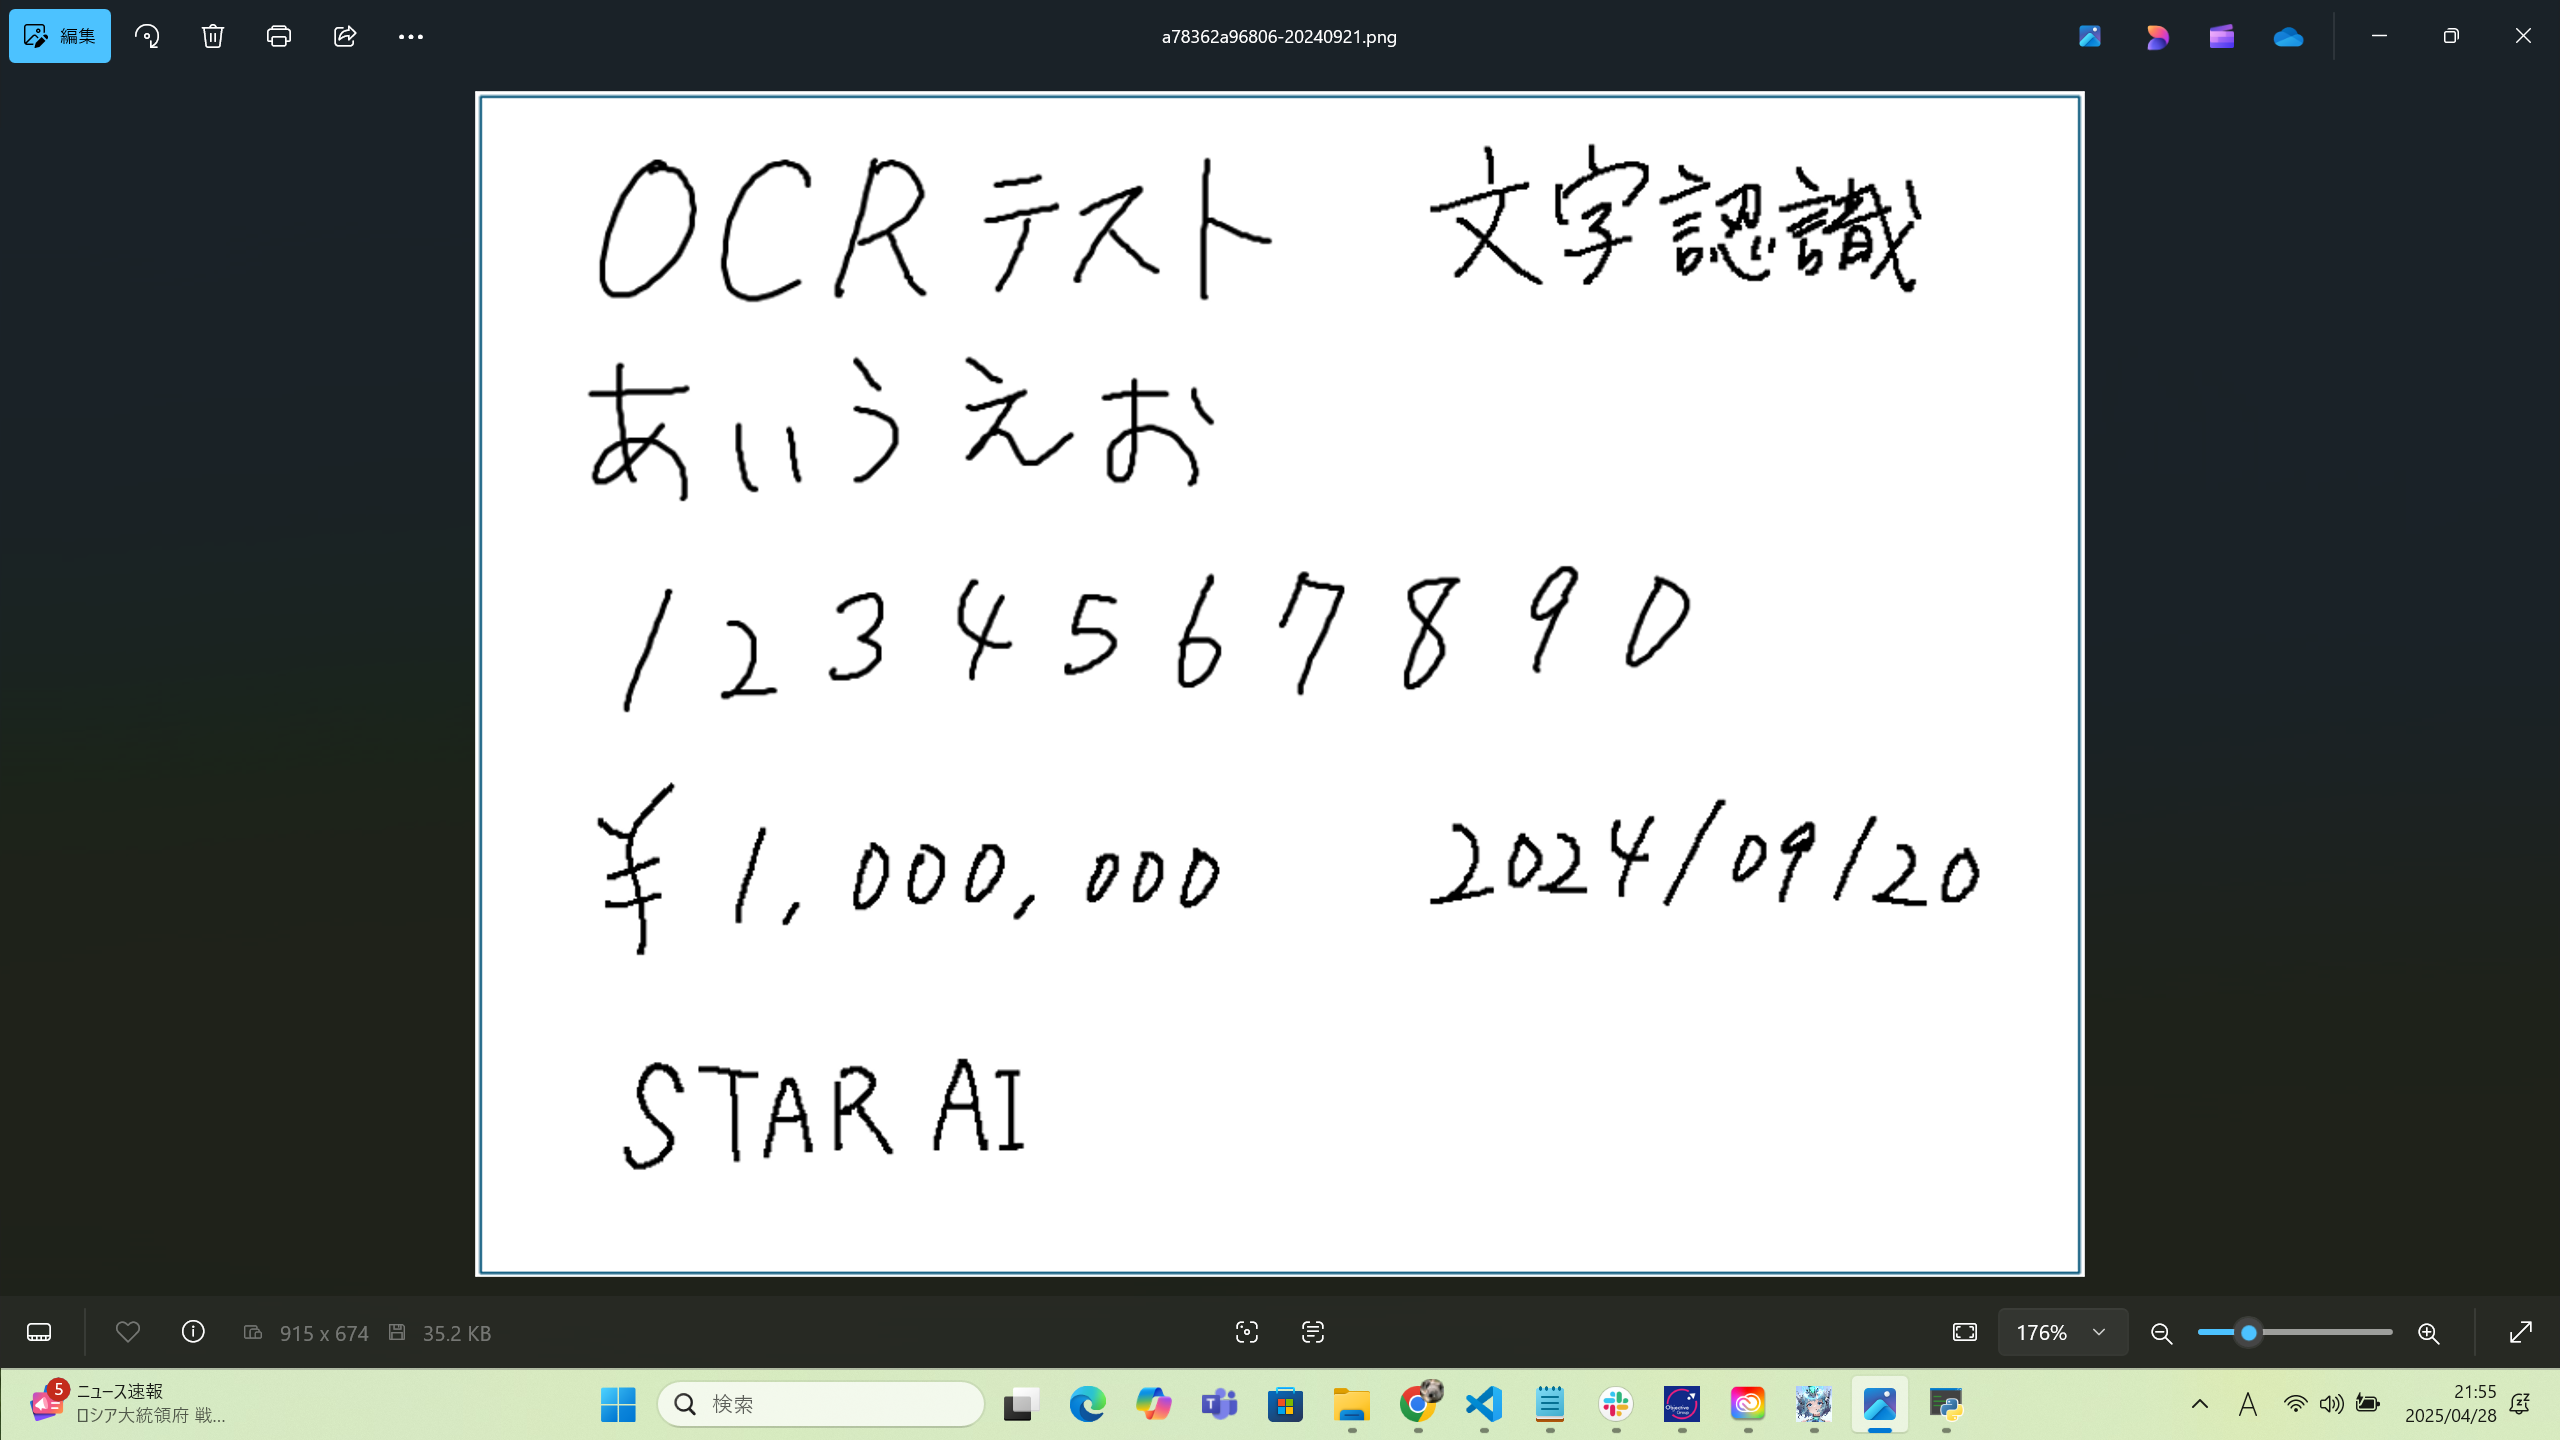 編集
a78362a96806-20240921.png
OCRテスト 文字認識
あいうえお
1 2 3 4 5 6 7 8 9 0
¥ 1,000,000 2024/09/20
STAR AI
915 x 674 35.2 KB 176%
5 ニュース速報
ロシア大統領府 戦...
検索
A
21:55
2025/04/28